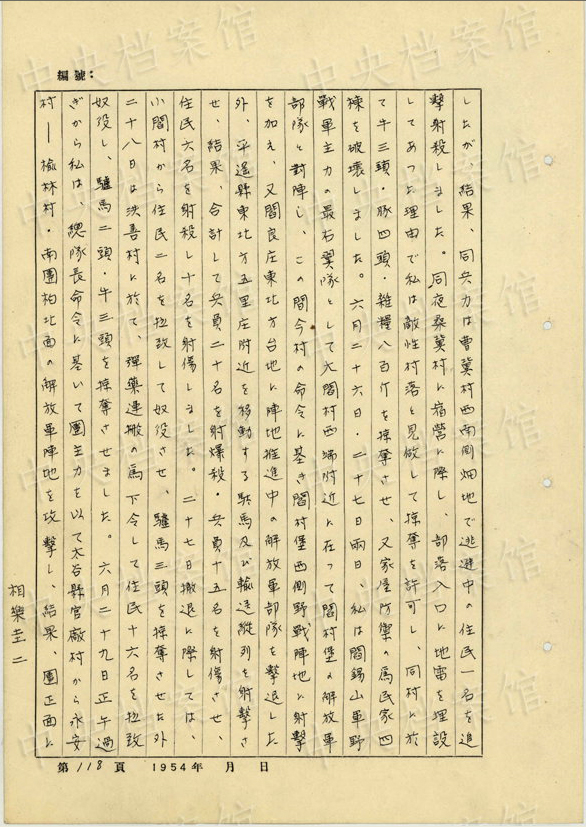 編號:
したが、結果、同兵力は曹冀村西南側畑地で逃避中の住民一名を追
撃射殺しました。同夜桑冀村に宿営に際し、部落入口に地雷を埋設
してあった理由で私は敵性村落と見做して掠奪を許可し、同村に於
て牛三頭・豚四頭・雑糧八百斤を掠奪させ、又家屋防禦の為民家四
棟を破壊しました。六月二十六日・二十七日両日、私は閻錫山軍野
戦軍主力の最右翼隊として大閻村西端附近に在って閻村堡の解放軍
部隊と対陣し、この間今村の命令に基き閻村堡西側野戦陣地に射撃
を加え、又閻良庄東北方台地に陣地推進中の解放軍部隊を撃退した
外、平遙縣東北方五里庄附近を移動する駄馬及び輸送縦列を射撃さ
せ、結果、合計して兵員二十名を射爆殺・兵員十五名を射傷させ、
住民六名を射殺し十名を射傷しました。二十七日撤退に際しては、
小閻村から住民二名を拉致して奴役させ、驢馬三頭を掠奪させた外
二十八日は洪善村に於て、弾薬運搬の為下令して住民十六名を拉致
奴役し、驢馬二頭・牛三頭を掠奪させました。六月二十九日正午過
ぎから私は、總隊長命令に基いて團主力を以て太谷縣官廠村から永安
村—楡林村・南團柏北面の解放軍陣地を攻撃し、結果、團正面に
相樂圭二
第118頁 1954年 月 日
中央档案馆